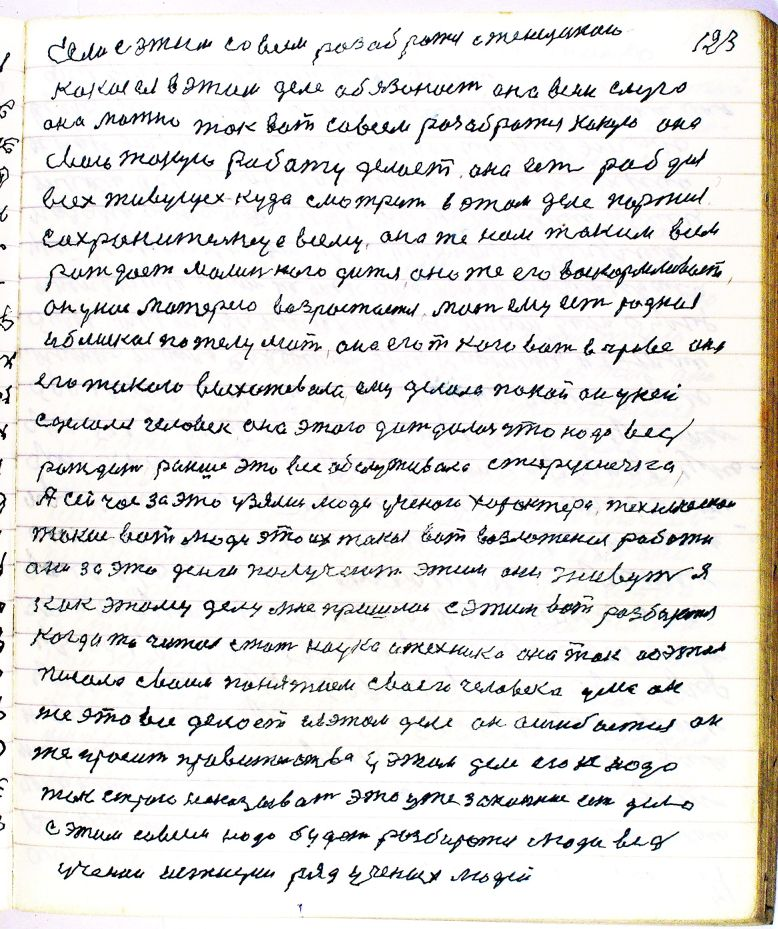 123
Если с этим совсем разабратся с женщиною
какая в этом деле обязаност она всем слуга
она можно так вот совсем разабратся какую она
свою такую работу делает, она ест раб для
всех живущех куда смотрит в этом деле партия
сохранителнеце всему, она же нам таким всем
раждает малинкого дитя, она же его выкормливает,
он у нас матерею возростается, мат ему ест родная
и близкая по телу мат, она его такого вот в чреве она
его такого выхожевала, ему делала покой он у ней
сделался человек она этого дождалася это надо вед
раждат раньше это все обслуживала старушечка,
А сейчас за это узялис люди ученого характера, технически
такие вот люди это их такая вот возложеная работа
они за это денги получают этим они живут я
как этому делу мне пришлос с этим вот разбиратся
когда то читал стат наука и техника она так об этом
писала своим понятием своего человека ума он
же это все делает и в этом деле он ошибается он
же просит правителства у этом деле его не надо
так строго наказыват это уже законное ест дело
с этим совсем надо будет разбиратся люди вед
ученаи неживуи ряд ученых людей